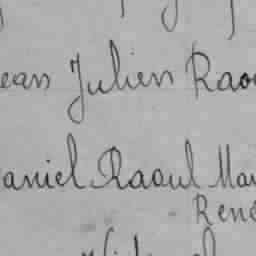 ean Julien Raou
aniel Raoul Mau
René